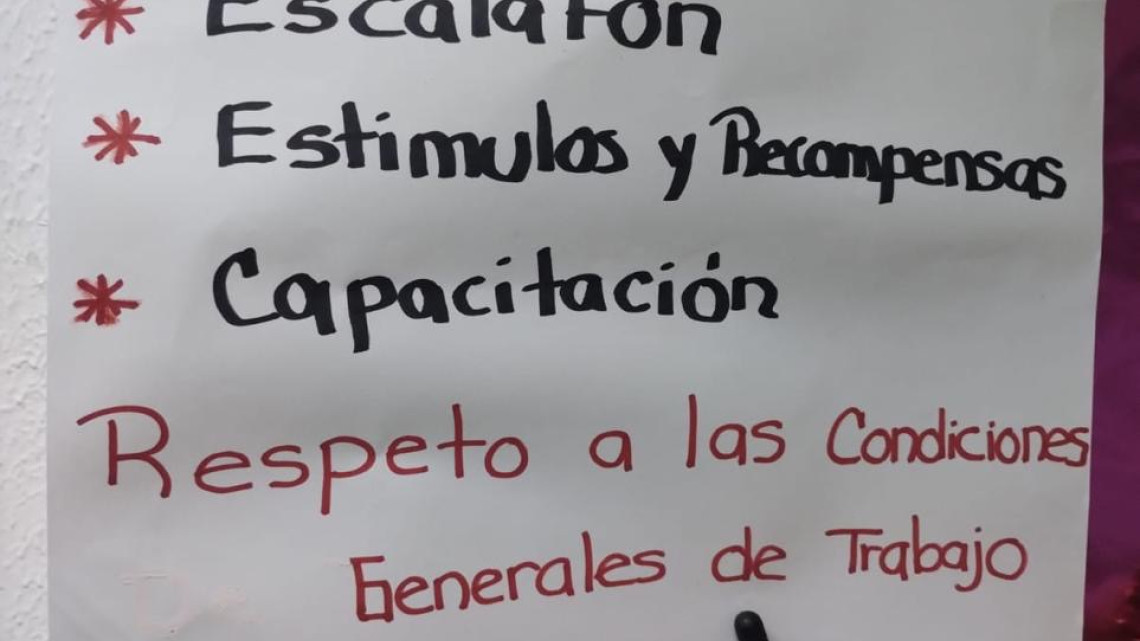 * Escalafón
* Estimulos y Recompensas
* Capacitación
Respeto a las Condiciones
Generales de Trabajo